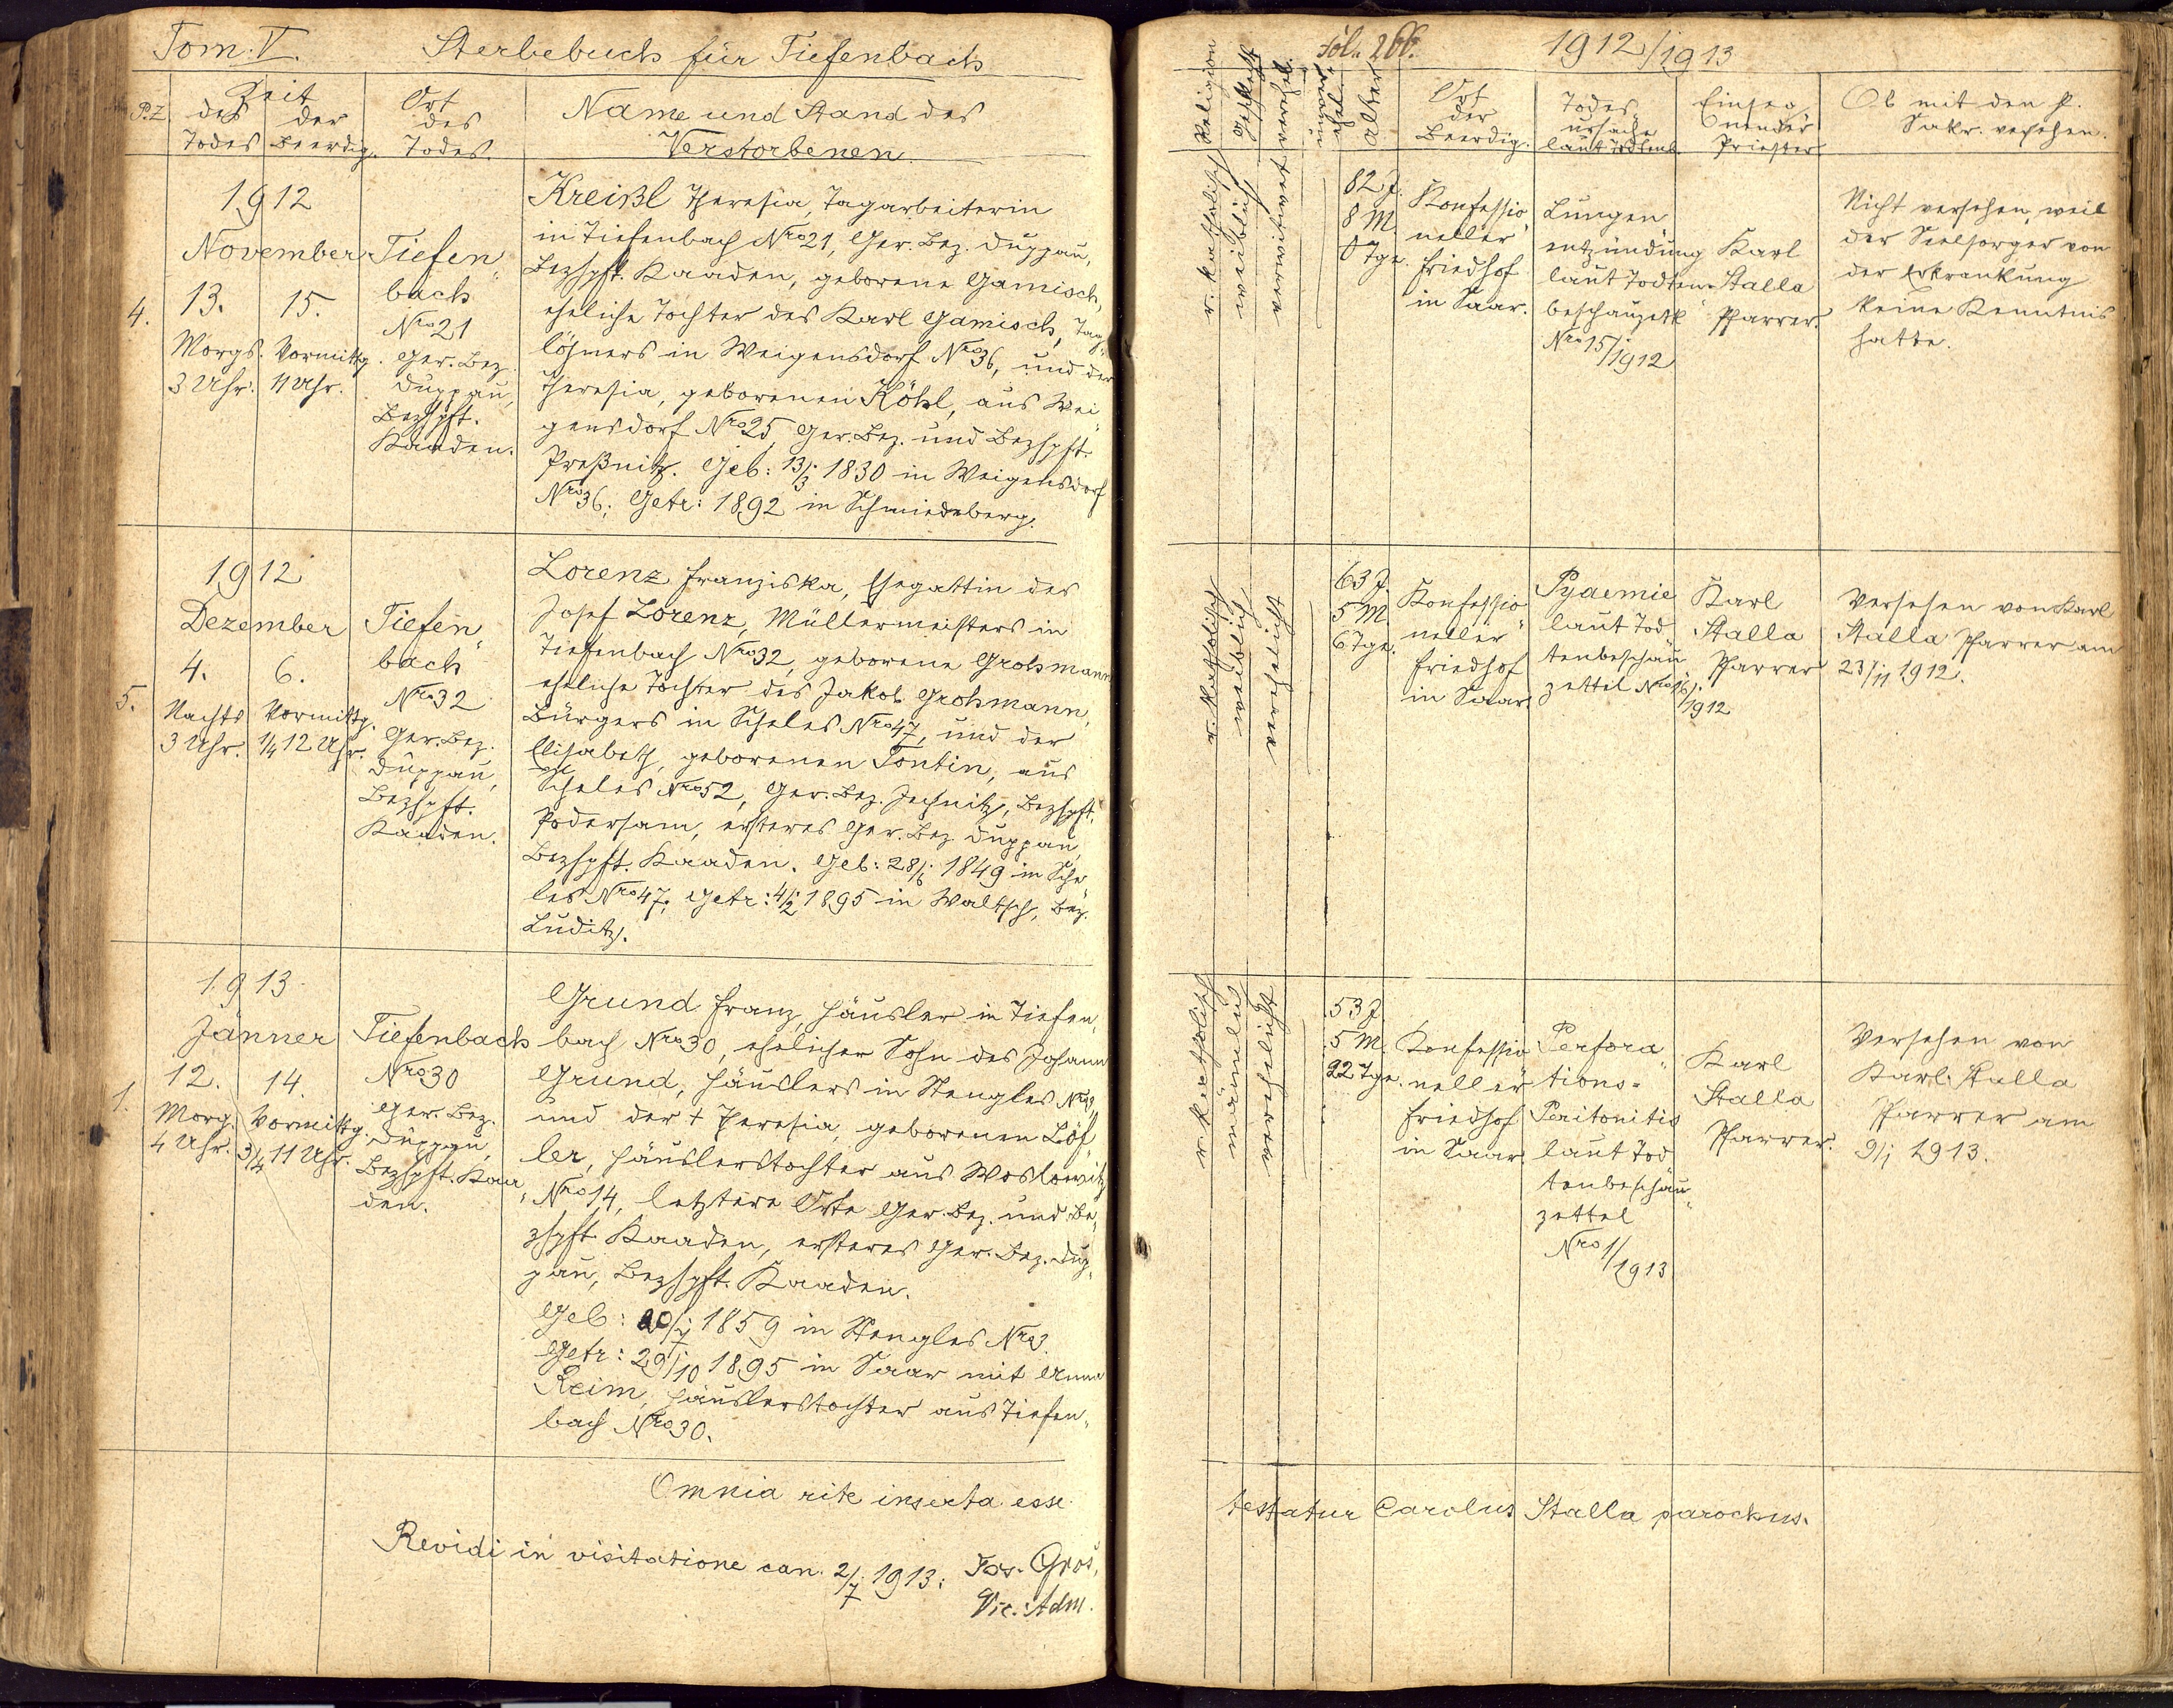 Tom. V. Sterbebuch für Tiefenbach
P.Z. Zeit
des Todes
der Beerdig.
Ort des Todes.
Name und Stand des
Verstorbenen.
4.
1912
November
13. 15.
Morgs. Vormittg.
3 Uhr. 11 Uhr.
Tiefen„
bach
Nro 21
Ger. Bez.
Duppau,
Bezhpft.
Kaaden.
Kreißl Theresia, Tagarbeiterin
in Tiefenbach Nro 21, Ger. Bez. Duppau,
Bezhpft. Kaaden, geborene Gamisch,
eheliche Tochter des Karl Gamisch, Tag„
löhners in Weigensdorf Nro 36, und der
Theresia, geborenen Köhl, aus Wei„
gensdorf Nro 25, Ger. Bez. und Bezhpft.
Preßnitz. Geb: 13/3 1830 in Weigensdorf
Nro 36; Getr: 1892 in Schmiedeberg.
5.
1912
Dezember
4. 6.
Nachts Vormittg.
3 Uhr. 1/4 12 Uhr.
Tiefen„
bach
Nro 32
Ger. Bez.
Duppau,
Bezhpft.
Kaaden.
Lorenz Franziska, Ehegattin des
Josef Lorenz, Müllermeisters in
Tiefenbach Nro 32, geborene Grohmann
eheliche Tochter des Jakob Grohmann,
Bürgers in Scheles Nro 47, und der
Elisabeth, geborenen Tontin, aus
Scheles Nro 52, Ger. Bez. Jechnitz, Bezhpft.
Podersam, ersteres Ger. Bez Duppau,
Bezhpft. Kaaden. Geb: 28/6 1849 in Sche„
les Nro 47; Getr: 4/2 1895 in Waltsch, Bez.
Luditz.
1.
1913
Jänner
12. 14.
Morg. Vormittg.
4 Uhr. 3/4 11 Uhr.
Tiefenbach
Nro 30
Ger. Bez.
Duppau,
Bezhpft. Kaa„
den.
Grund Franz, Häusler in Tiefen„
bach Nro 30, ehelicher Sohn des Johann
Grund, Häuslers in Stengles Nro 3,
und der + Theresia, geborenen Löf„
ler, Häuslerstochter aus Woslowitz
Nro 14, letztere Orte Ger. Bez. und Be„
zhpft. Kaaden, ersteres Ger. Bez. Dup„
pau, Bezhpft. Kaaden.
Geb: 20/7 1859 in Stengles Nro 3.
Getr: 29/10 1895 in Saar mit Anna
Reim, Häuslerstochter aus Tiefen„
bach Nro 30.
Omnia rite inserta esse
Revidi in visitatione can. 2/7 1913: Jos. Groš,
Vic. Adm.
Fol. 266. 1912/1913
Religion
Geschlecht
verehel.
Alter
Ort
der
Beerdig.
Todes„
ursache
laut Todtenb.
Einseg„
nender
Priester
Ob mit den h.
Sakr. versehen.
r. katholisch
weiblich
verwitwet
82 J.
8 M.
0 Tge.
Konfessio„
neller
Friedhof
in Saar.
Lungen„
entzündung
laut Todten„
beschauzettel
Nro 15/1912
Karl
Stalla
Pfarrer.
Nicht versehen, weil
der Seelsorger von
der Erkrankung
keine Kenntnis
hatte.
r. katholisch
weiblich
verehelicht
63 J.
5 M.
6 Tge.
Konfessio„
neller
Friedhof
in Saar.
Pyaemie
laut Tod„
tenbeschau„
zettel Nro 16/1912
Karl
Stalla
Pfarrer
Versehen von Karl
Stalla Pfarrer am
23/11 1912.
r. katholisch
männlich
verehelicht
53 J.
5 M.
22 Tge.
Konfessio„
neller
Friedhof
in Saar.
Perfora„
tions-
Peritonitis
laut Tod„
tenbeschau„
zettel
Nro 1/1913
Karl
Stalla
Pfarrer.
Versehen von
Karl Stalla
Pfarrer am
9/1 1913.
testatur Carolus Stalla parochus.